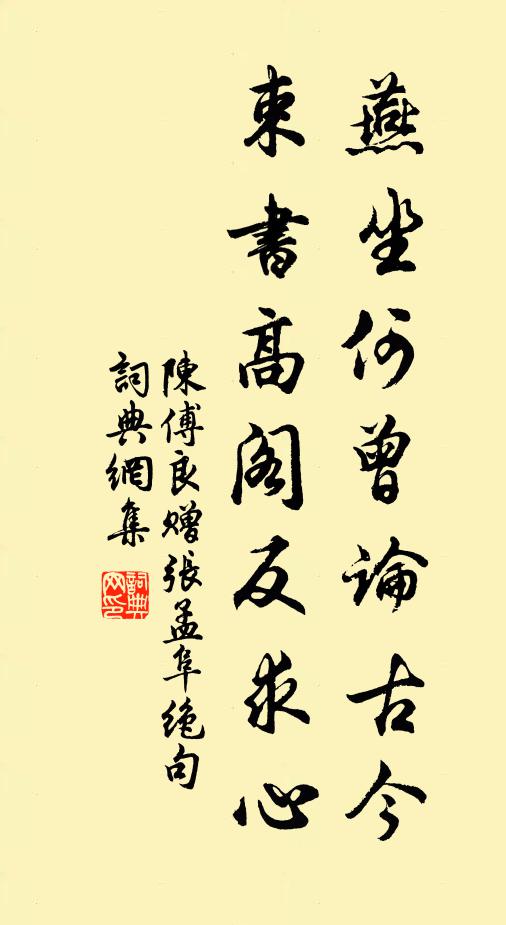 燕坐何曾論古今
束書高閣反求心
陳傅良贈張孟阜絕句
詞典網集
詞典網印